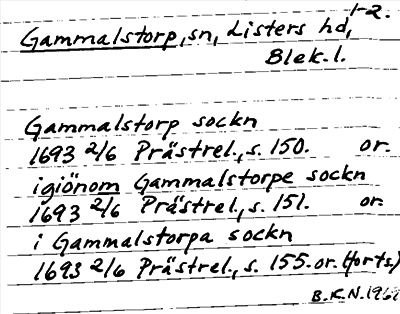 1-2.
Gammalstorp, sn, Listers hd,
Blek. l.
Gammalstorp sockn
1693 2/6 Prästrel., s. 150. or.
igiönom Gammalstorpe sockn
1693 2/6 Prästrel., s. 151. or.
i Gammalstorpa sockn
1693 2/6 Prästrel., s. 155. or. (forts.)
B.K.N.